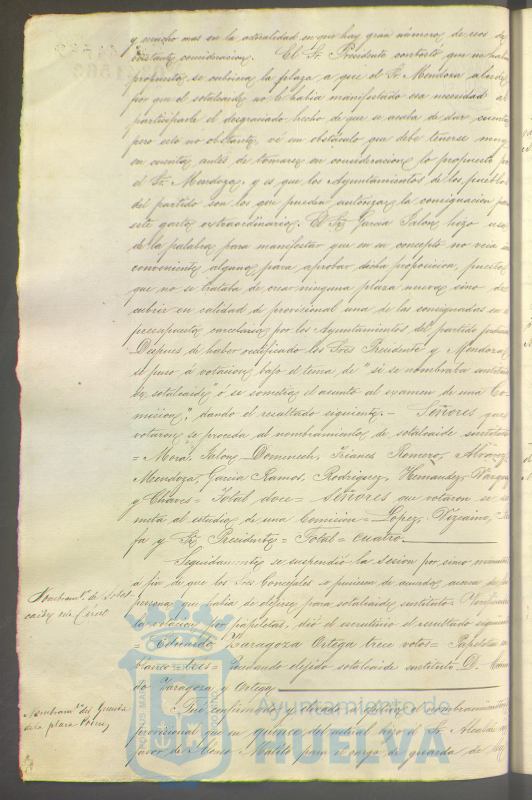 y mucho mas en la actualidad en que hay gran número de esos de
constante consideracion. El Sr. Presidente contestó que no habia
propuesto se cubriera la plaza a que el Sr. Mendoza alude
por que el sotalcaide no le habia manifestado esa necesidad al
participarle el desgraciado hecho de que se acaba de dar cuenta
pero esto no obstante, vé un obstáculo que debe tenerse muy
en cuenta antes de tomarse en consideracion lo propuesto por
el Sr. Mendoza, y es que los Ayuntamientos de los pueblos
del partido son los que pueden autorizar la consignacion para
este gasto extraordinario. El Sr. Garcia Jalon hizo uso
de la palabra para manifestar que en su concepto no veia in
conveniente alguno para aprobar dicha proposicion, puesto
que no se trataba de crear ninguna plaza nueva sino de
cubrir en calidad de provisional una de las consignadas en el
presupuesto carcelario por los Ayuntamientos del partido judicial
Despues de haber rectificado los Sres Presidente y Mendoza,
se puso á votacion bajo el tema de "si se nombraba sustituto
de sotalcaide" ó se sometia el asunto al examen de una Co
mision", dando el resultado siguiente.- Señores que
votaron se proceda al nombramiento de sotalcaide sustituto
= Mora, Jalon, Domenech, Trianes, Romero, Alvarez,
Mendoza, Garcia Ramos, Rodriguez, Hernandez, Vargas
y Chaves = Total doce = Señores que votaron se so
meta al estudio de una Comision = Lopez, Vizcaino,
fa y Sr. Presidente = Total = cuatro.
Seguidamente se suspendió la sesion por cinco minutos
a fin de que los Sres Concejales se pusieran de acuerdo acerca de la
persona que habia de elejirse para sotalcaide sustituto. Verificada
la votacion por papeletas, dió el escrutinio el resultado siguiente
= Eduardo Zaragoza Ortega trece votos = Papeletas en
blanco = tres = Quedando elejido sotalcaide sustituto D.
do Zaragoza y Ortega
Fué confirmado y elevado a definitivo el nombramiento
provisional que en quince del actual hizo el Sr. Alcalde á
favor de Matito para el cargo de guarda de la
Nombramto. de Sotal
caide de la Cárcel
Nombramto. del Guarda
de la plaza
Ayuntamiento de
HUELVA